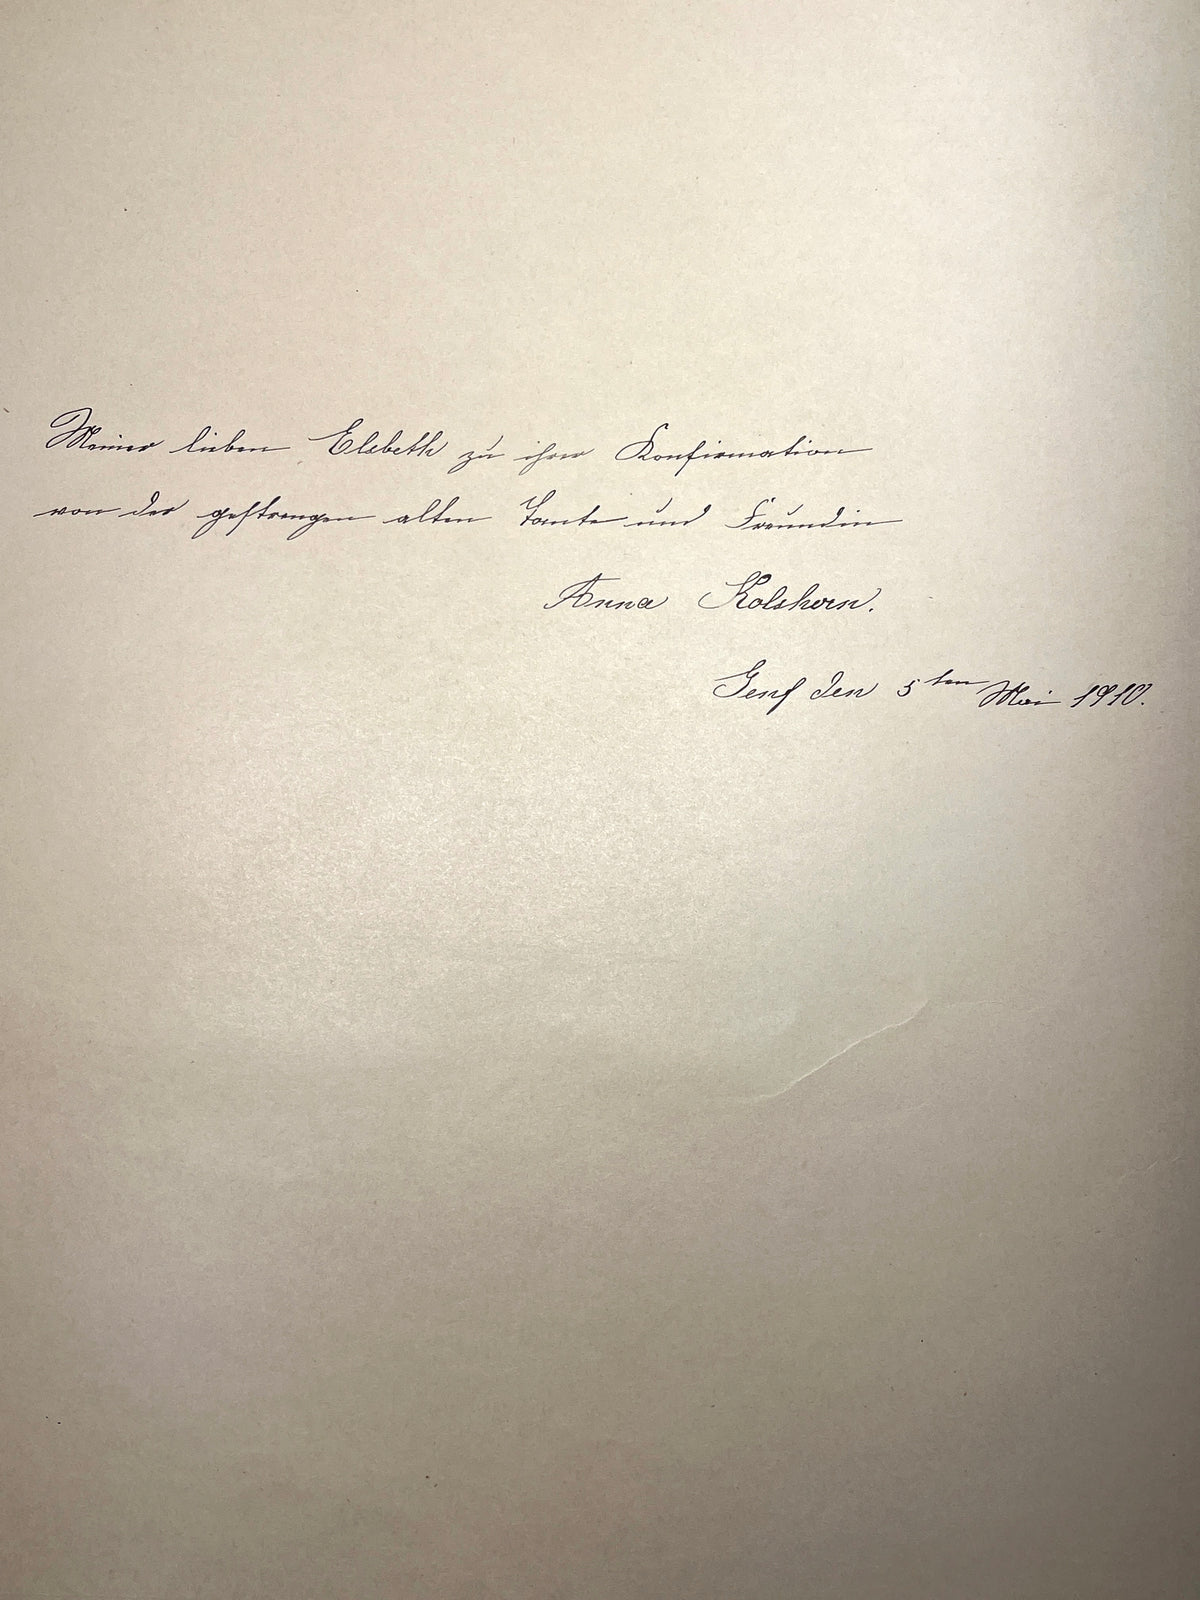 Meiner lieben Elsbeth zu ihrer Konfirmation
von der gestrengen alten Tante und Freundin
Anna Kolshorn.
Genf den 5ten Mai 1910.